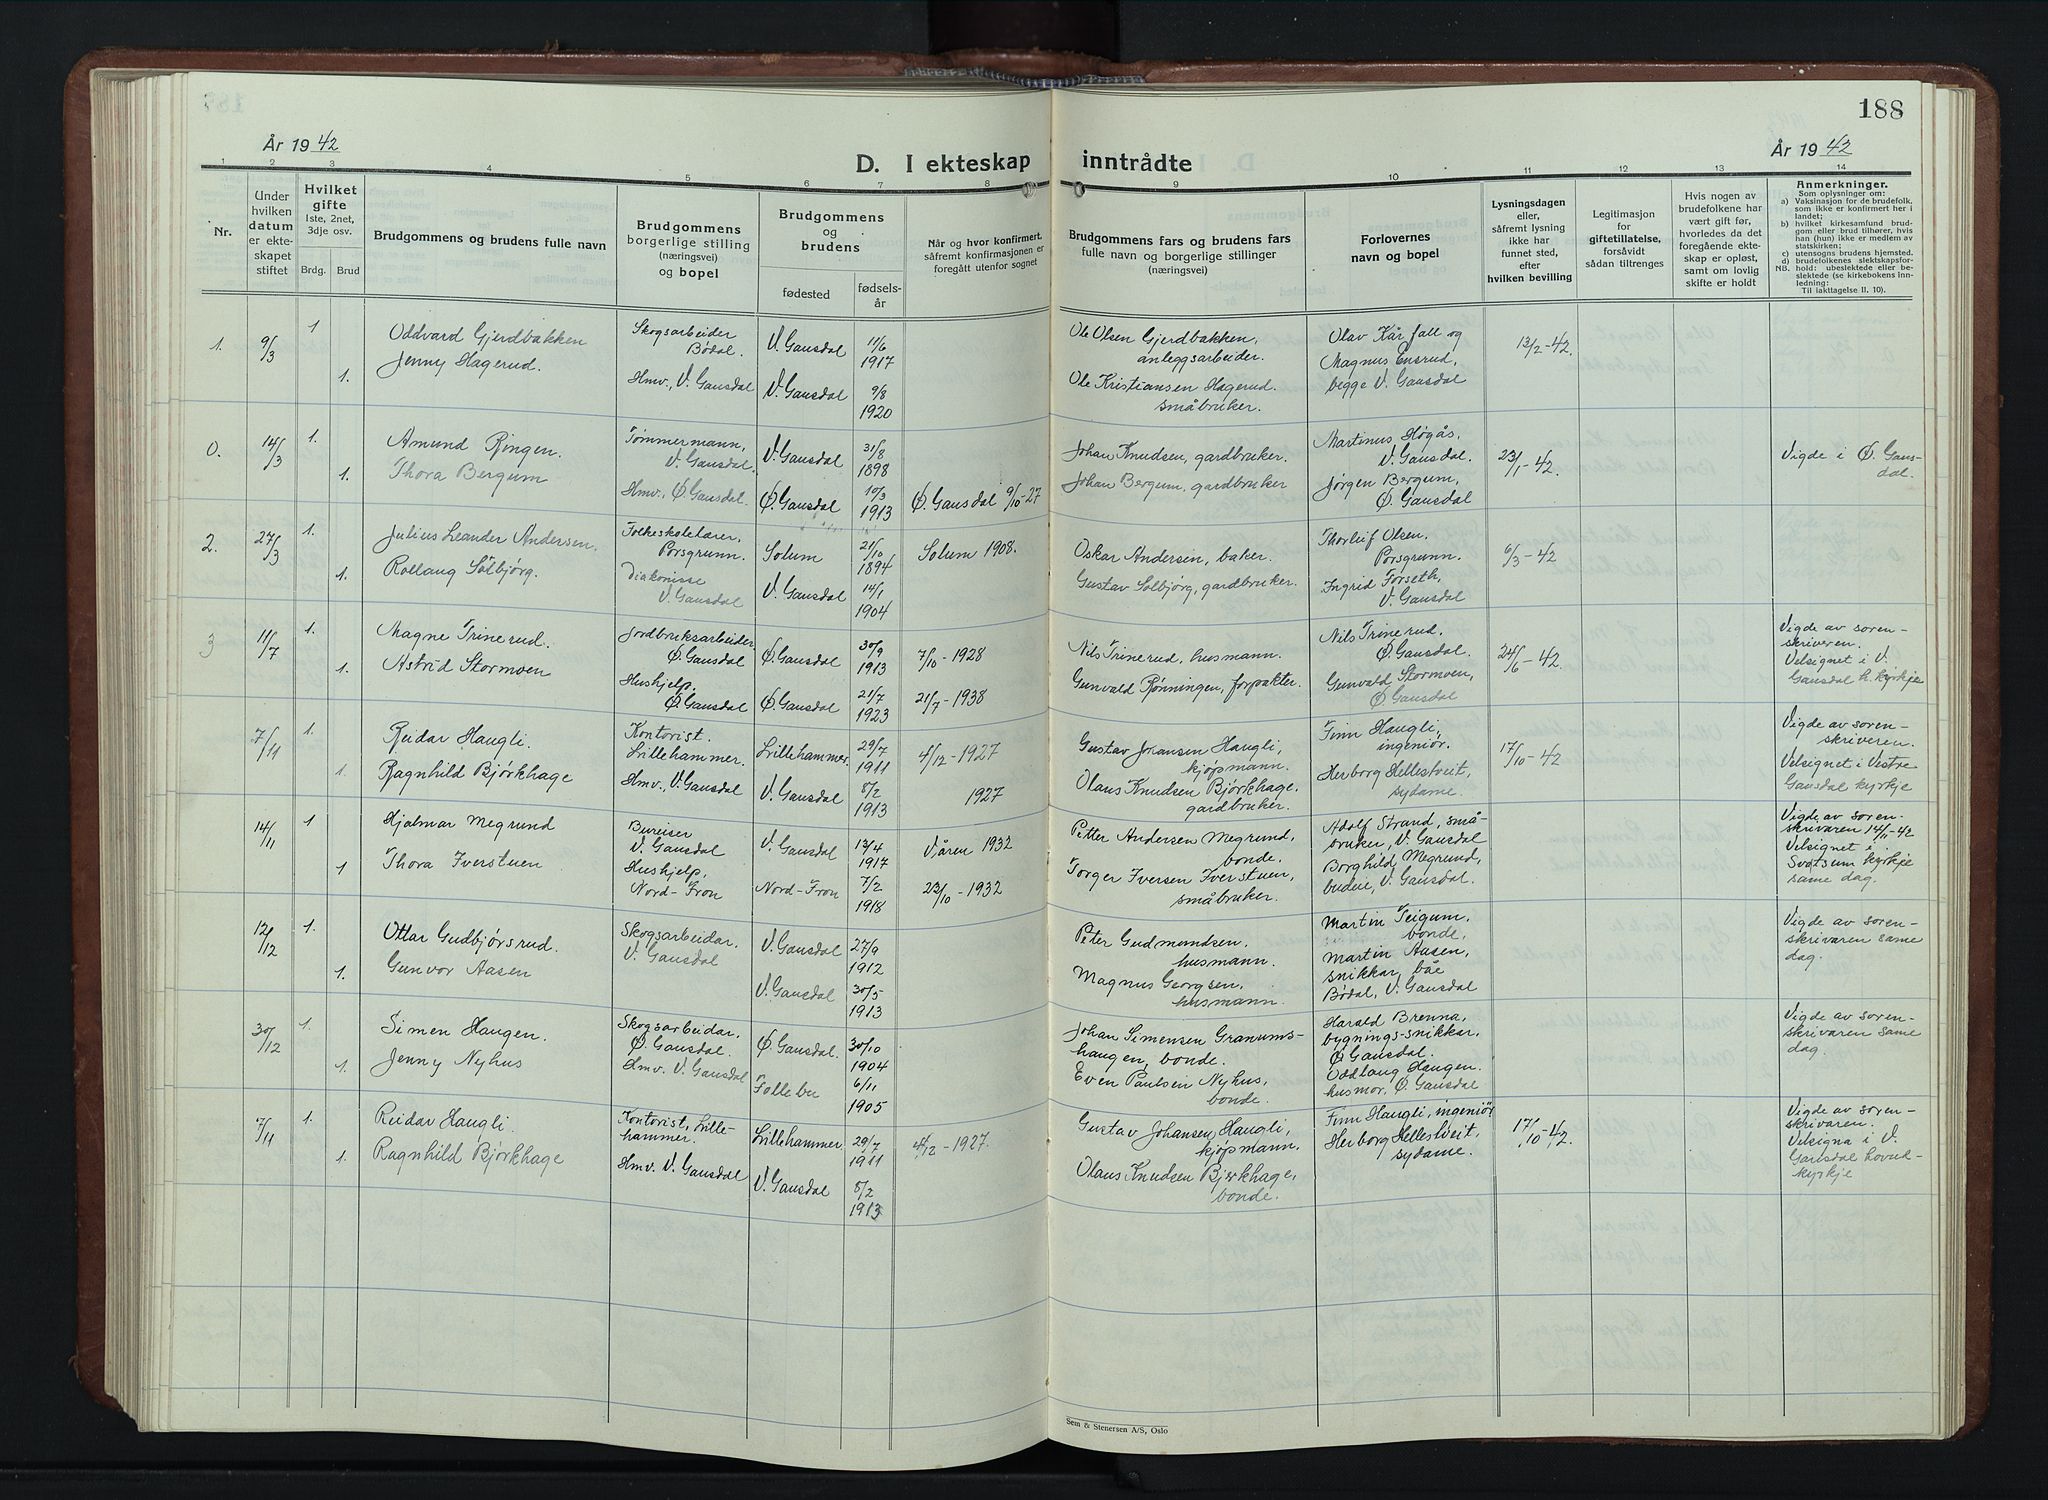 188
År 1942
År 1942
D. I ekteskap inntrådte
1 2 3 4 5 6 7 8 9 10 11 12 13 14
Nr.
Under hvilken datum er ekteskapet stiftet
Hvilket gifte
1ste, 2net, 3dje osv.
Brdg. Brud
Brudgommens og brudens fulle navn
Brudgommens borgerlige stilling (næringsvei) og bopel
Brudgommens og brudens
fødested
fødselsår
Når og hvor konfirmert, såfremt konfirmasjonen er foregått utenfor sognet
Brudgommens fars og brudens fars fulle navn og borgerlige stillinger (næringsvei)
Forlovernes navn og bopel
Lysningsdagen eller, såfremt lysning ikke har funnet sted, efter hvilken bevilling
Legitimasjon for giftetillatelse, forsåvidt sådan tiltrenges
Hvis nogen av brudefolkene har vært gift før, hvorledes da det foregående ekteskap er opløst, samt om lovlig skifte er holdt
Anmerkninger.
Som oplysninger om:
a) Vaksinasjon for de brudefolk, som ikke er konfirmert her i landet;
b) hvilket kirkesamfund brudgom eller brud tilhører, hvis han (hun) ikke er medlem av statskirken;
c) utensogns brudens hjemsted.
d) brudefolkenes slektskapsforhold: ubeslektede eller beslektede (se kirkebokens innledning:
NB. Til iakttagelse II. 10).
1. 9/3 1 Oddvard Gjerdbakken Skogsarbeider Bødal. V. Gausdal 11/6 1917 Ole Olsen Gjerdbakken, anleggsarbeider. Olav Kårfall og Magnus Ensrud, begge V. Gausdal 13/2-42.
1. Jenny Hagerud. Hmv., V. Gausdal V. Gausdal 9/8 1920 Ole Kristiansen Hagerud. småbruker.
0. 14/3 1. Amund Ringen. Tømmermann, V. Gausdal. V. Gausdal 31/8 1898 Johan Knudsen, gardbruker. Martinus Høgås, V. Gausdal. 23/1-42. Vigde i Ø. Gausdal.
1. Thora Bergum Hmv., Ø. Gausdal. Ø. Gausdal 10/3 1913 Ø. Gausdal 9/10-27 Johan Bergum, gardbruker Jørgen Bergum, Ø. Gausdal
2. 27/3 1. Julius Leander Andersen. Folkeskolelærer, Porsgrunn. Solum 21/10 1894 Solum 1908. Oskar Andersen, baker. Thorleif Olsen, Porsgrunn. 6/3-42
1. Rollaug Solbjørg. Diakonisse V. Gausdal V. Gausdal 14/1 1904 Gustav Solbjørg, gardbruker. Ingrid Forseth, V. Gausdal
3 11/7 1. Magne Trinerud. Jordbruksarbeider Ø. Gausdal Ø. Gausdal 30/9 1913 7/10-1928 Nils Trinerud, husmann. Nils Trinerud, Ø. Gausdal. 24/6-42. Vigde av sorenskriveren. Velsignet i V. Gausdal h.kyrkje
1. Astrid Stormoen Hushjelp, Ø. Gausdal Ø. Gausdal 21/7 1923 21/7-1938 Gunvald Rønningen, forpakter. Gunvald Stormoen, Ø. Gausdal
7/11 1. Reidar Haugli. Kontorist. Lillehammer. Lillehammer. 29/7 1911 4/12-1927 Gustav Johansen Haugli, kjøpmann. Finn Haugli, ingeniør. 17/10-42 Vigde av sorenskriveren. Velsignet i Vestre Gausdal kyrkje
1. Ragnhild Bjørkhage Hmv., V. Gausdal V. Gausdal 8/2 1913 1927 Olaus Knudsen Bjørkhage, gardbruker. Herborg Hellestveit, sydame.
14/11 1 Hjalmar Megrund Bureiser V. Gausdal V. Gausdal 13/4 1917 Våren 1932 Petter Andersen Megrund, bonde. Adolf Strand, småbruker, V. Gausdal Vigde av sorenskrivaren 14/11-42 Velsignet i Svatsum kyrkje same dag.
1 Thora Iverstuen Hushjelp, Nord-Fron Nord-Fron 7/2 1918 23/10-1932 Torger Iversen Iverstuen, småbruker. Borghild Megrund, budeie, V. Gausdal.
12/12 1. Ottar Gudbjørsrud. Skogsarbeidar, V. Gausdal V. Gausdal 27/9 1912 Peter Gudmundsen, husmann. Martin Teigum, bonde, Vigde av sorenskrivaren same dag.
1. Gunvor Aasen V. Gausdal 30/5 1913 Magnus Georgsen, husmann. Martin Aasen, snikkar, båe Bødal, V. Gausdal
30/12 1. Simen Haugen. Skogsarbeidar, Ø. Gausdal. Ø. Gausdal. 30/10 1904 Johan Simensen Granumshaugen, bonde. Harald Brenna, bygnings-snikkar, Ø. Gausdal. Vigde av sorenskrivaren same dag.
1. Jenny Nyhus Hmv. V. Gausdal Follebu 6/11 1905 Even Paulsen Nyhus, bonde. Oddlaug Haugen. husmor, Ø. Gausdal
7/11 1. Reidar Haugli. Kontorist, Lillehammer. Lillehammer. 29/7 1911 4/12-1927. Gustav Johansen Haugli, kjøpmann. Finn Haugli, ingeniør 17/10-42. Vigde av sorenskrivaren. Velsigna i V. Gausdal hovudkyrkje
1. Ragnhild Bjørkhage Hmv. V. Gausdal V. Gausdal 8/2 1913 Olaus Knudsen Bjerkhage, bonde. Herborg Hellestveit, sydame.
Sem & Stenersen A/S, Oslo